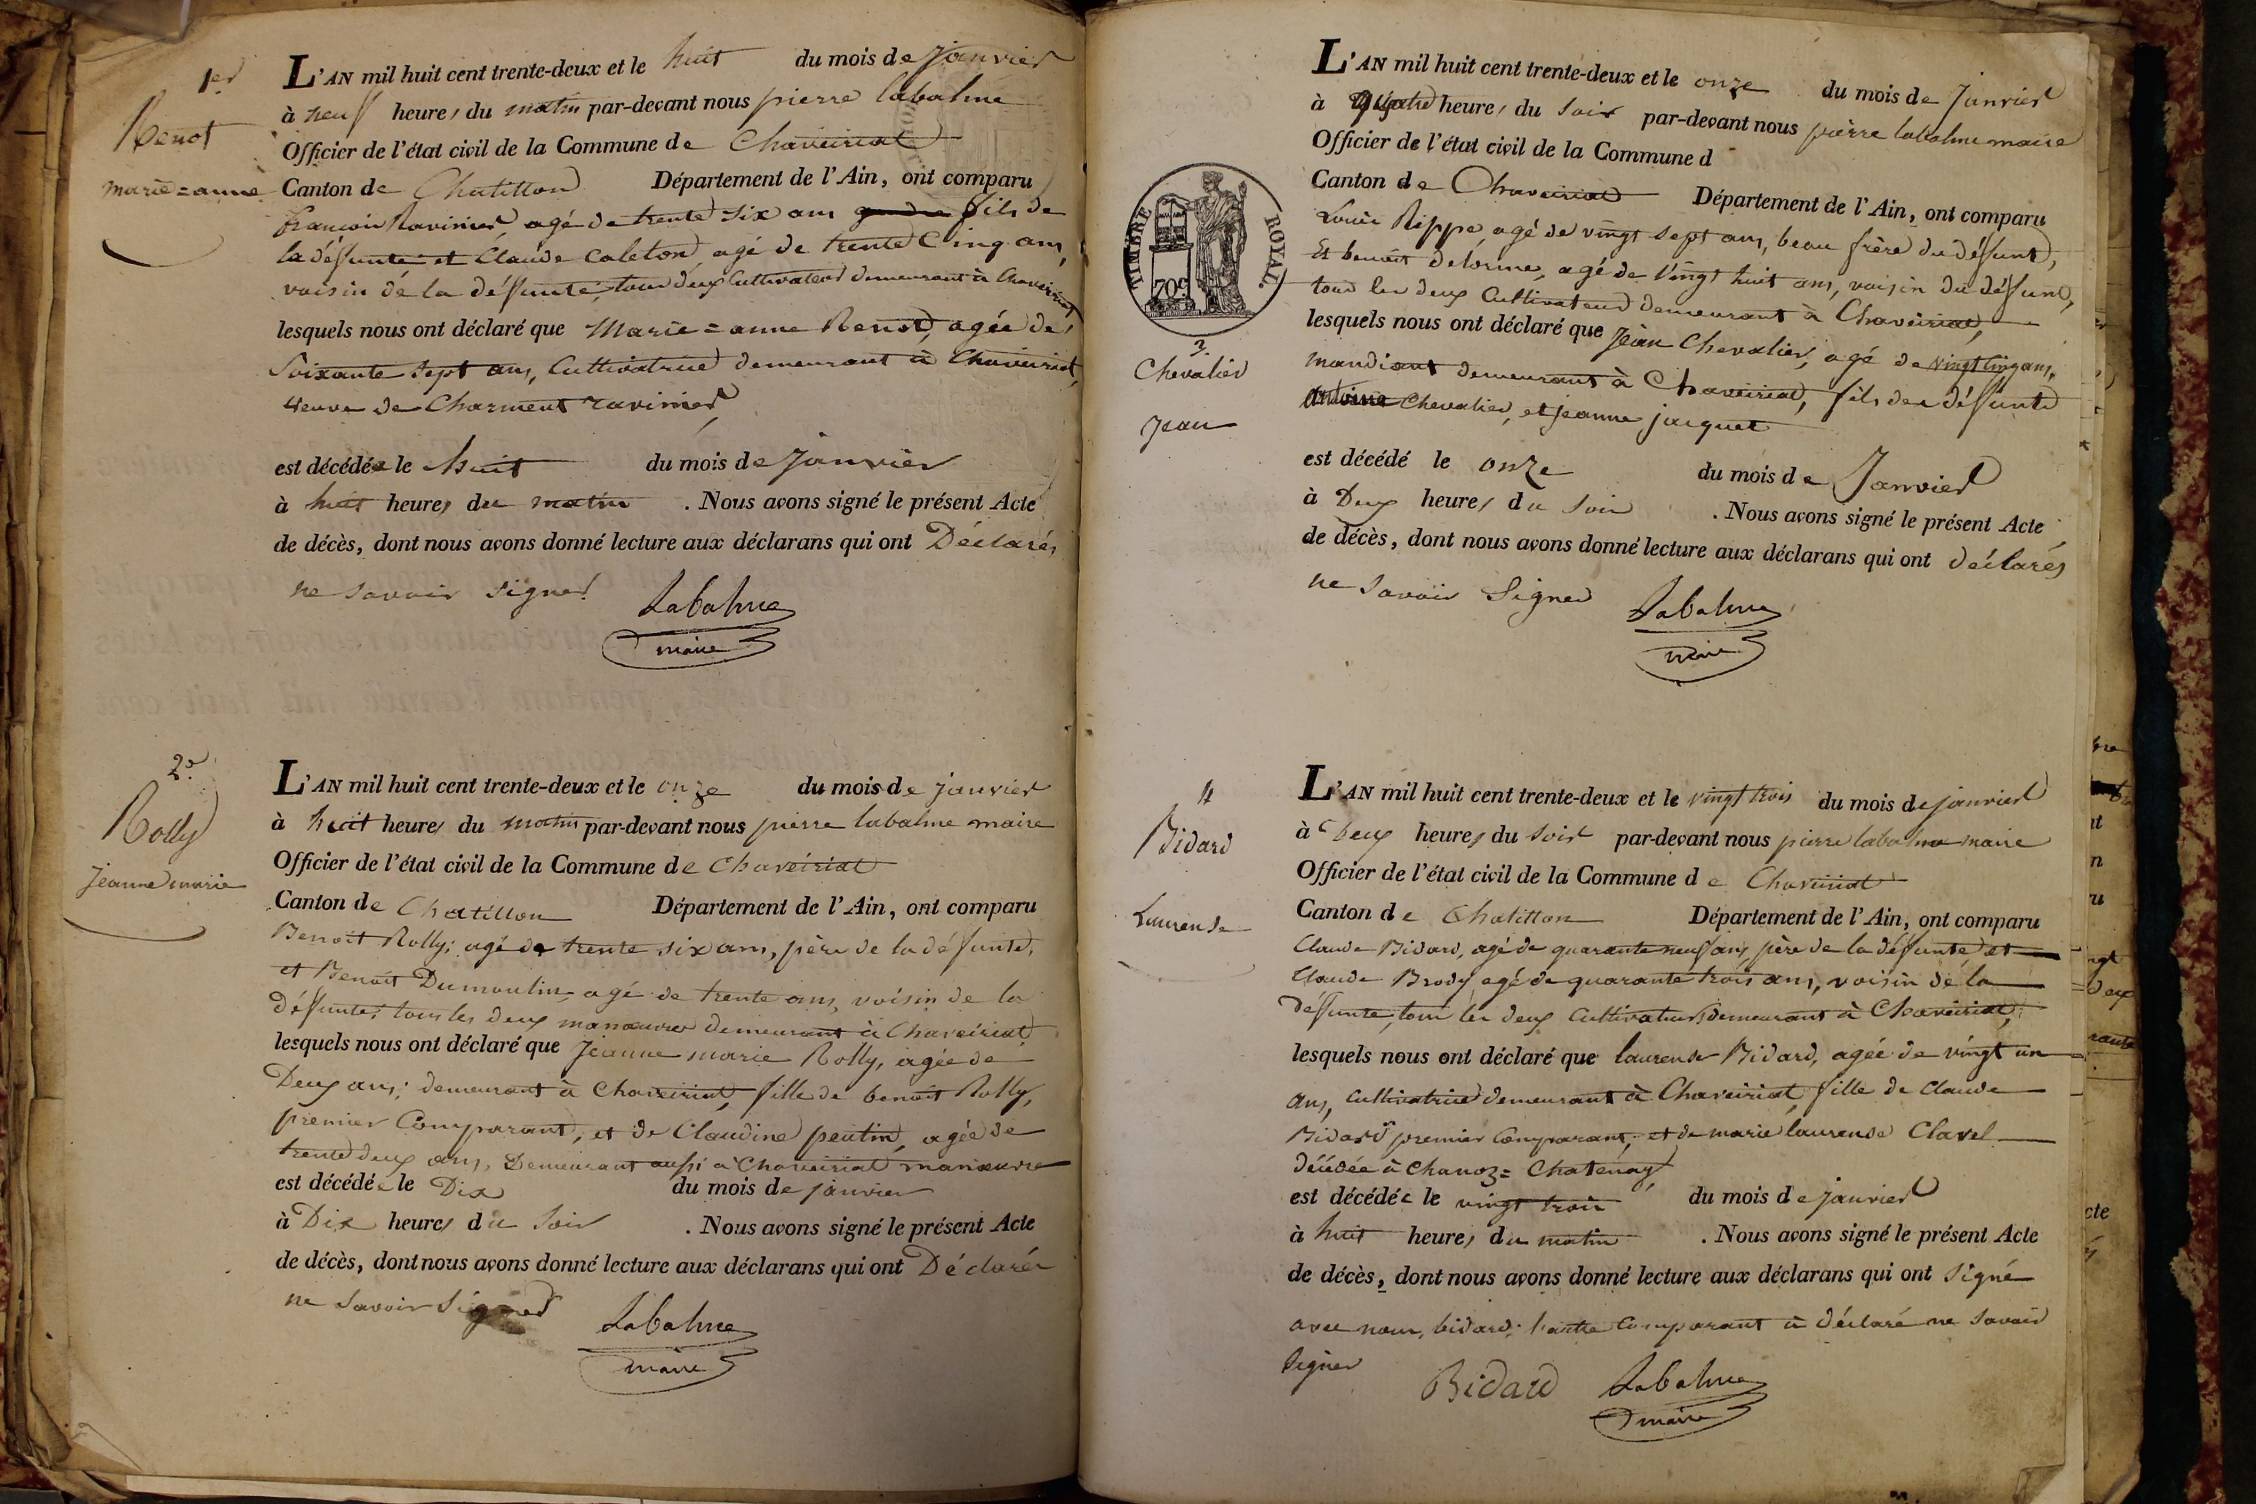 1er
Renot
marie=anne
L'AN mil huit cent trente-deux et le huit du mois de janvier
à neuf heures du matin par-devant nous pierre labalme
Officier de l'état civil de la Commune de Chaveiriat
Canton de Chatillon Département de l'Ain, ont comparu
françois Ravinier agé de trente six ans gendre fils de
la défunte et Claude Caleton agé de trente Cinq ans,
voisin de la défunte, tous deux Cultivateurs demeurant à Chaveiriat
lesquels nous ont déclaré que Marie=anne Renot, agée de
Soixante sept ans, Cultivatrice demeurant à Chaveiriat,
veuve de Charment ravinier,
est décédée le huit du mois de Janvier
à huit heures du matin . Nous avons signé le présent Acte
de décès, dont nous avons donné lecture aux déclarans qui ont Déclarés
ne savoir signer.
Labalme
maire
2e.
Rolly
Jeanne marie
L'AN mil huit cent trente-deux et le onze du mois de janvier
à huit heures du matin par-devant nous pierre labalme maire
Officier de l'état civil de la Commune de Chaveiriat
Canton de Chatillon Département de l'Ain, ont comparu
Benoit Rolly; agé de trente six ans, père de la défunte,
et Benoit Dumoulin, agé de trente ans, voisin de la
défunte, tous les deux manœuvres demeurant à Chaveiriat
lesquels nous ont déclaré que Jeanne marie Rolly, agée de
Deux ans; demeurant à Chaveiriat, fille de benoit Rolly,
premier Comparant, et de Claudine peutin, agée de
trente deux ans, Demeurant aussi à Chaveiriat manœuvre
est décédée le Dix du mois de janvier
à Dix heures du Soir . Nous avons signé le présent Acte
de décès, dont nous avons donné lecture aux déclarans qui ont Déclarés
ne savoir signer
Labalme
maire
TIMBRE ROYAL.
70c
3.
Chevalier
Jean
L'AN mil huit cent trente-deux et le onze du mois de Janvier
à quatre heures du soir par-devant nous pierre labalme maire
Officier de l'état civil de la Commune d
Canton de Chaveiriat Département de l'Ain, ont comparu
Louis Rippe, agé de vingt sept ans, beau frère du défunt,
Et benoit delorme, agé de vingt huit ans, voisin du défunt,
tous les deux Cultivateurs demeurant à Chaveiriat,
lesquels nous ont déclaré que Jean Chevalier, agé de vingt cinq ans,
mandiant demeurant à Chaveiriat, fils des défunts
Antoine Chevalier, et jeanne jacquet
est décédé le onze du mois de Janvier
à Deux heures du soir . Nous avons signé le présent Acte
de décès, dont nous avons donné lecture aux déclarans qui ont déclarés
ne savoir Signer
Labalme
maire
4
Bidard
Laurende
L'AN mil huit cent trente-deux et le vingt trois du mois de janvier
à Deux heures du soir par-devant nous pierre labalme maire
Officier de l'état civil de la Commune de Chaveiriat
Canton de Chatillon Département de l'Ain, ont comparu
Claude Bidard, agé de quarante neuf ans, père de la défunte, et
Claude Brody, agé de quarante trois ans, voisin de la
défunte, tous les deux Cultivateurs demeurant à Chaveiriat,
lesquels nous ont déclaré que laurende Bidard, agée de vingt un
ans, cultivatrice demeurant à Chaveiriat, fille de Claude
Bidard premier Comparant, et de marie laurende Clavel
décédée à Chanoz=Chatenay,
est décédée le vingt trois du mois de janvier
à huit heures du matin . Nous avons signé le présent Acte
de décès, dont nous avons donné lecture aux déclarans qui ont Signé
avec nous, bidard; l'autre Comparant à déclaré ne savoir
Signer
Bidard Labalme
maire